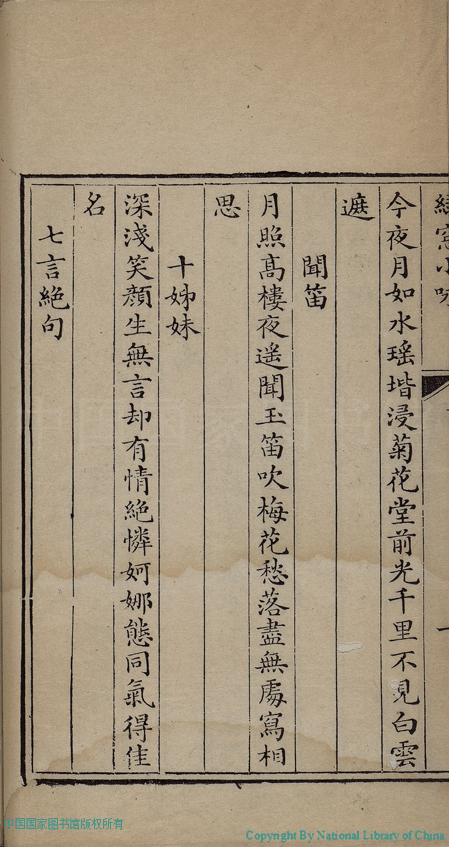 今夜月如水瑶堦浸菊花堂前光千里不見白雲
遮
聞笛
月照高樓夜遥聞玉笛吹梅花愁落盡無處寫相
思
十姊妹
深淺笑顔生無言却有情絶憐婀娜態同氣得佳
名
七言絶句
中国国家图书馆版权所有
Copyright By National Library of China